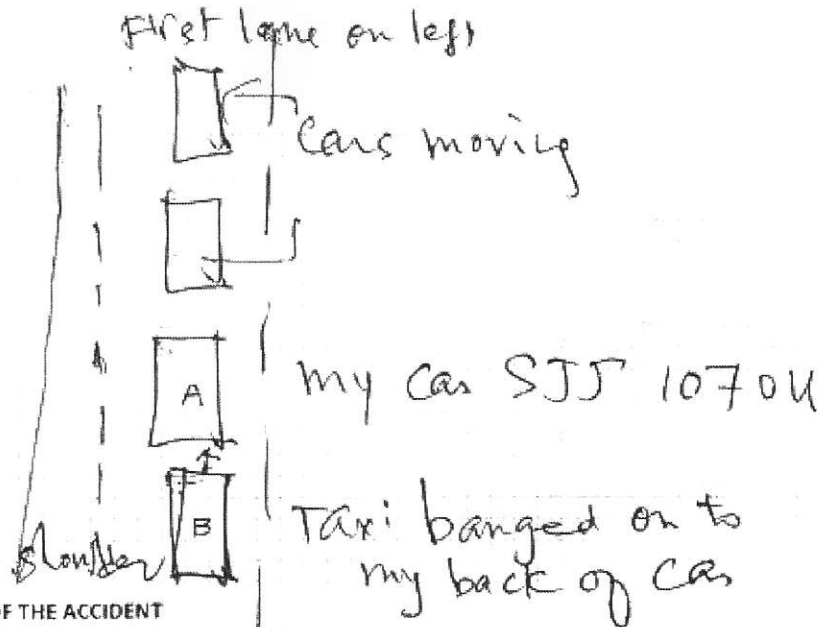 First lane on left
Cars moving
A
my car SJJ 1070U
B
Taxi banged on to
my back of car
shoulder
OF THE ACCIDENT